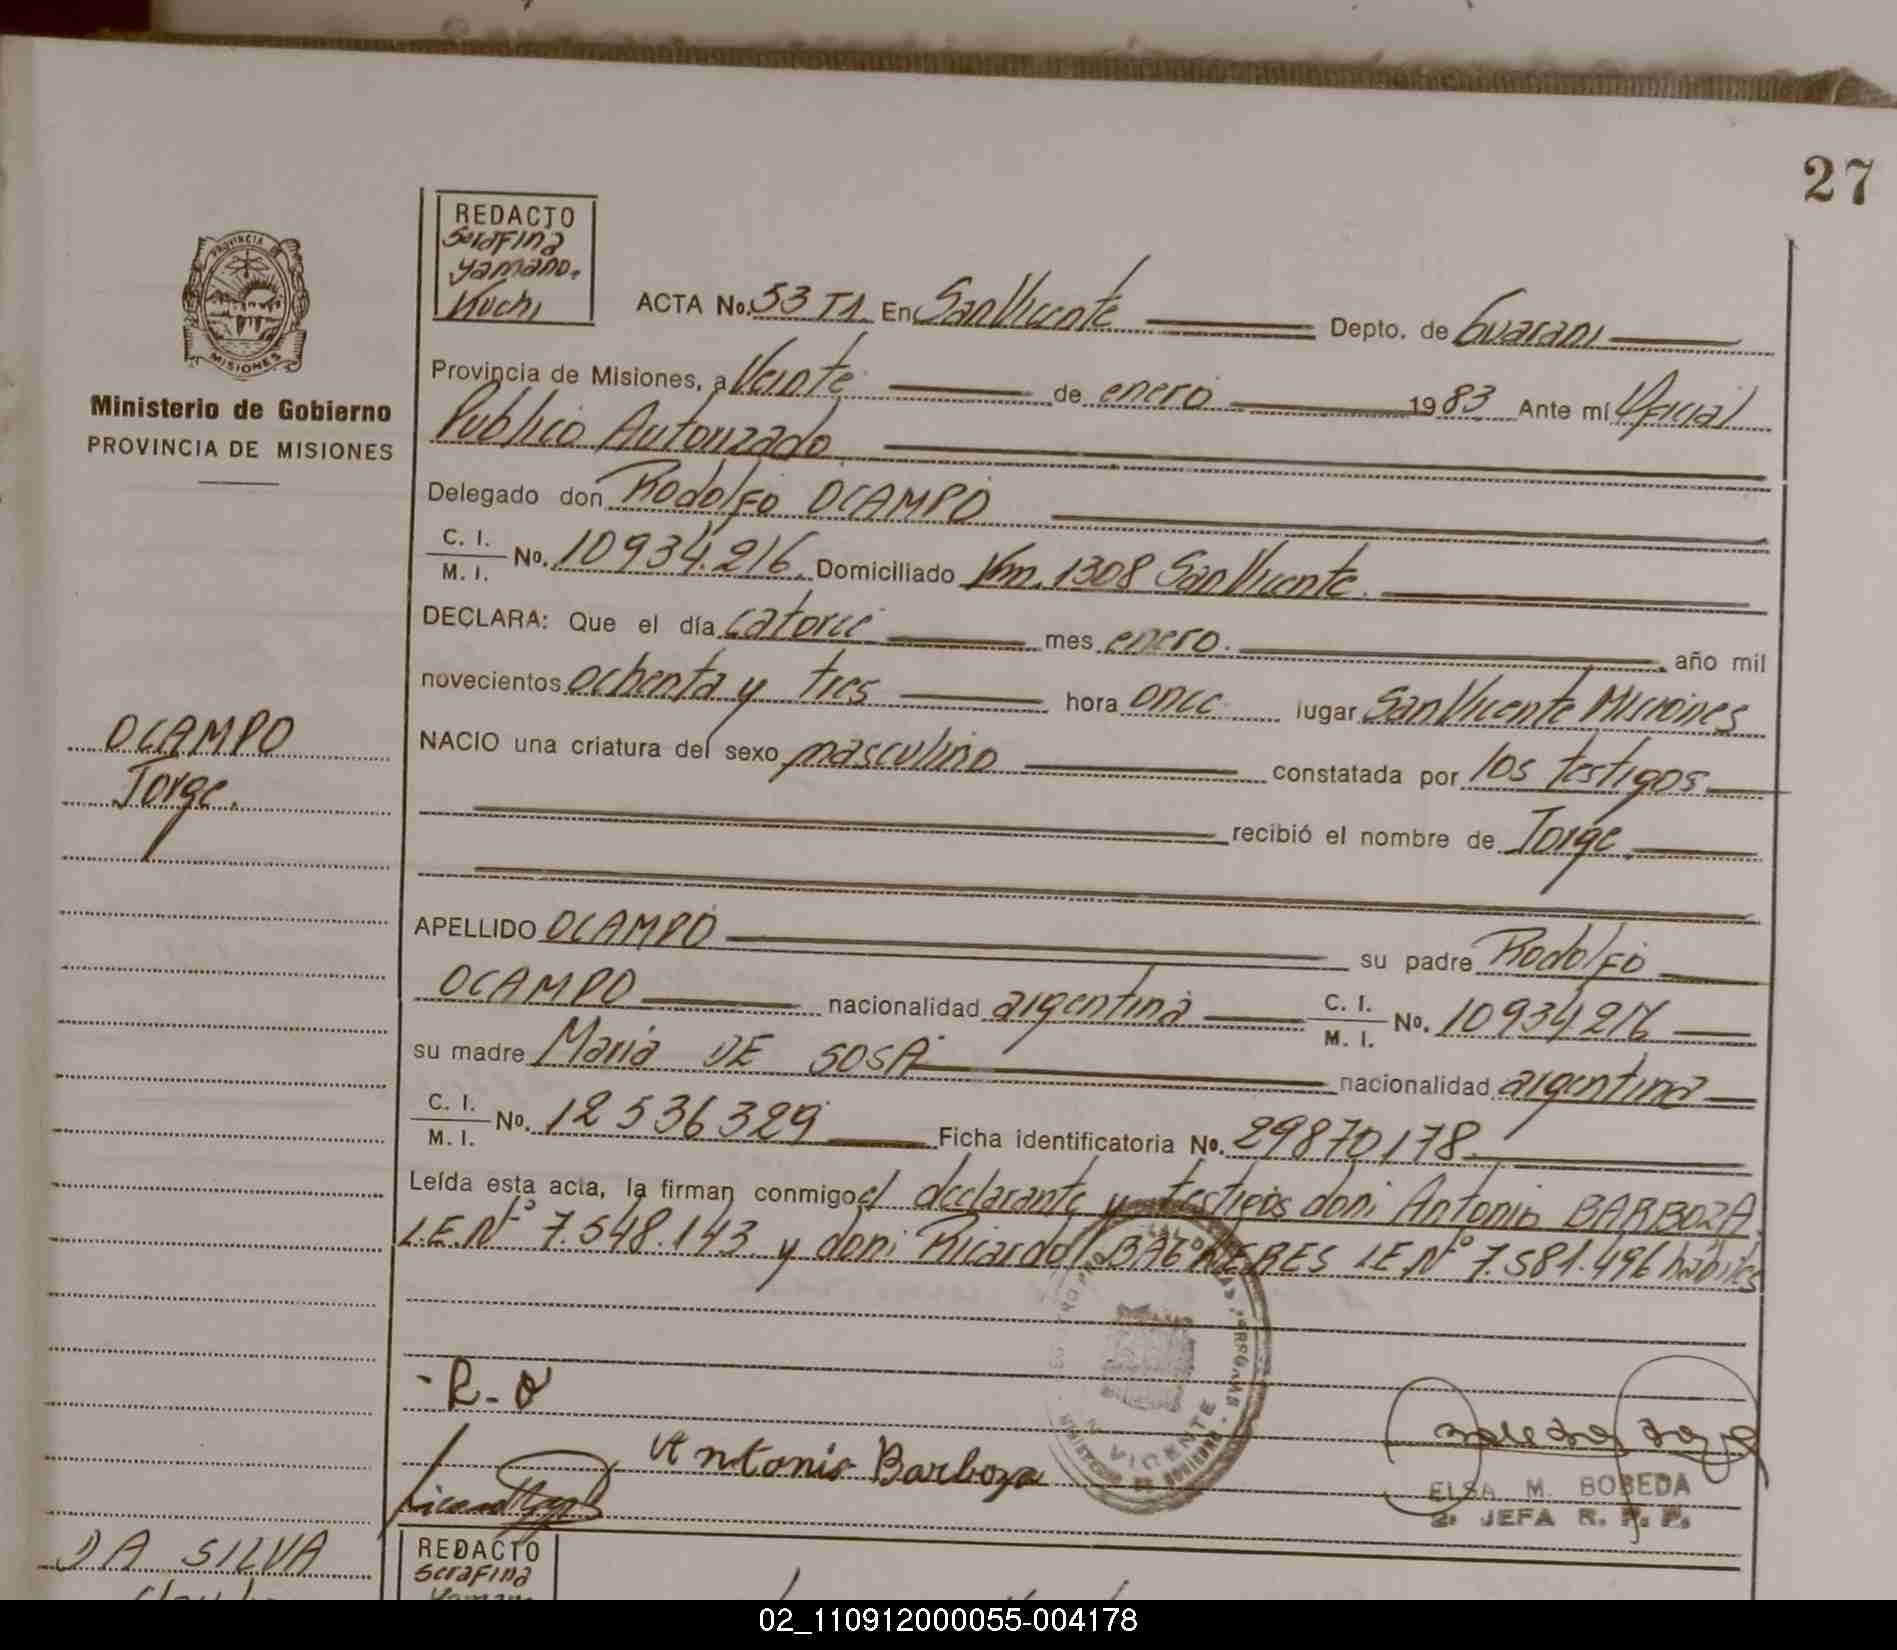 27
REDACTO
Serafina
Yamano.
Kuchi
PROVINCIA DE
MISIONES
Ministerio de Gobierno
PROVINCIA DE MISIONES
ACTA No. 53 T1 En San Vicente Depto. de Guarani
Provincia de Misiones, a Veinte de enero 1983 Ante mí Oficial
Publico Autorizado
Delegado don Rodolfo OCAMPO
C. I.
M. I. No. 10934.216. Domiciliado Km. 1308 San Vicente.
DECLARA: Que el día catorce mes enero. año mil
novecientos ochenta y tres hora once lugar San Vicente Misiones
NACIO una criatura del sexo masculino constatada por los testigos
recibió el nombre de Jorge
OCAMPO
Jorge.
APELLIDO OCAMPO su padre Rodolfo
OCAMPO nacionalidad argentina C. I.
M. I. No. 10934216
su madre Maria DE SOSA nacionalidad argentina
C. I.
M. I. No. 12536329 Ficha identificatoria No. 29870178
Leída esta acta, la firman conmigo el declarante y testigos don: Antonio BARBOZA
L.E.Nº 7.548.143 y don: Ricardo LE Nº 7.581.496 habiles
-R-O
Antonio Barboza
VICENTE
ELSA M. BOBEDA
2º JEFA R. P. P.
DA SILVA
REDACTO
Serafina
Yamano
02_110912000055-004178